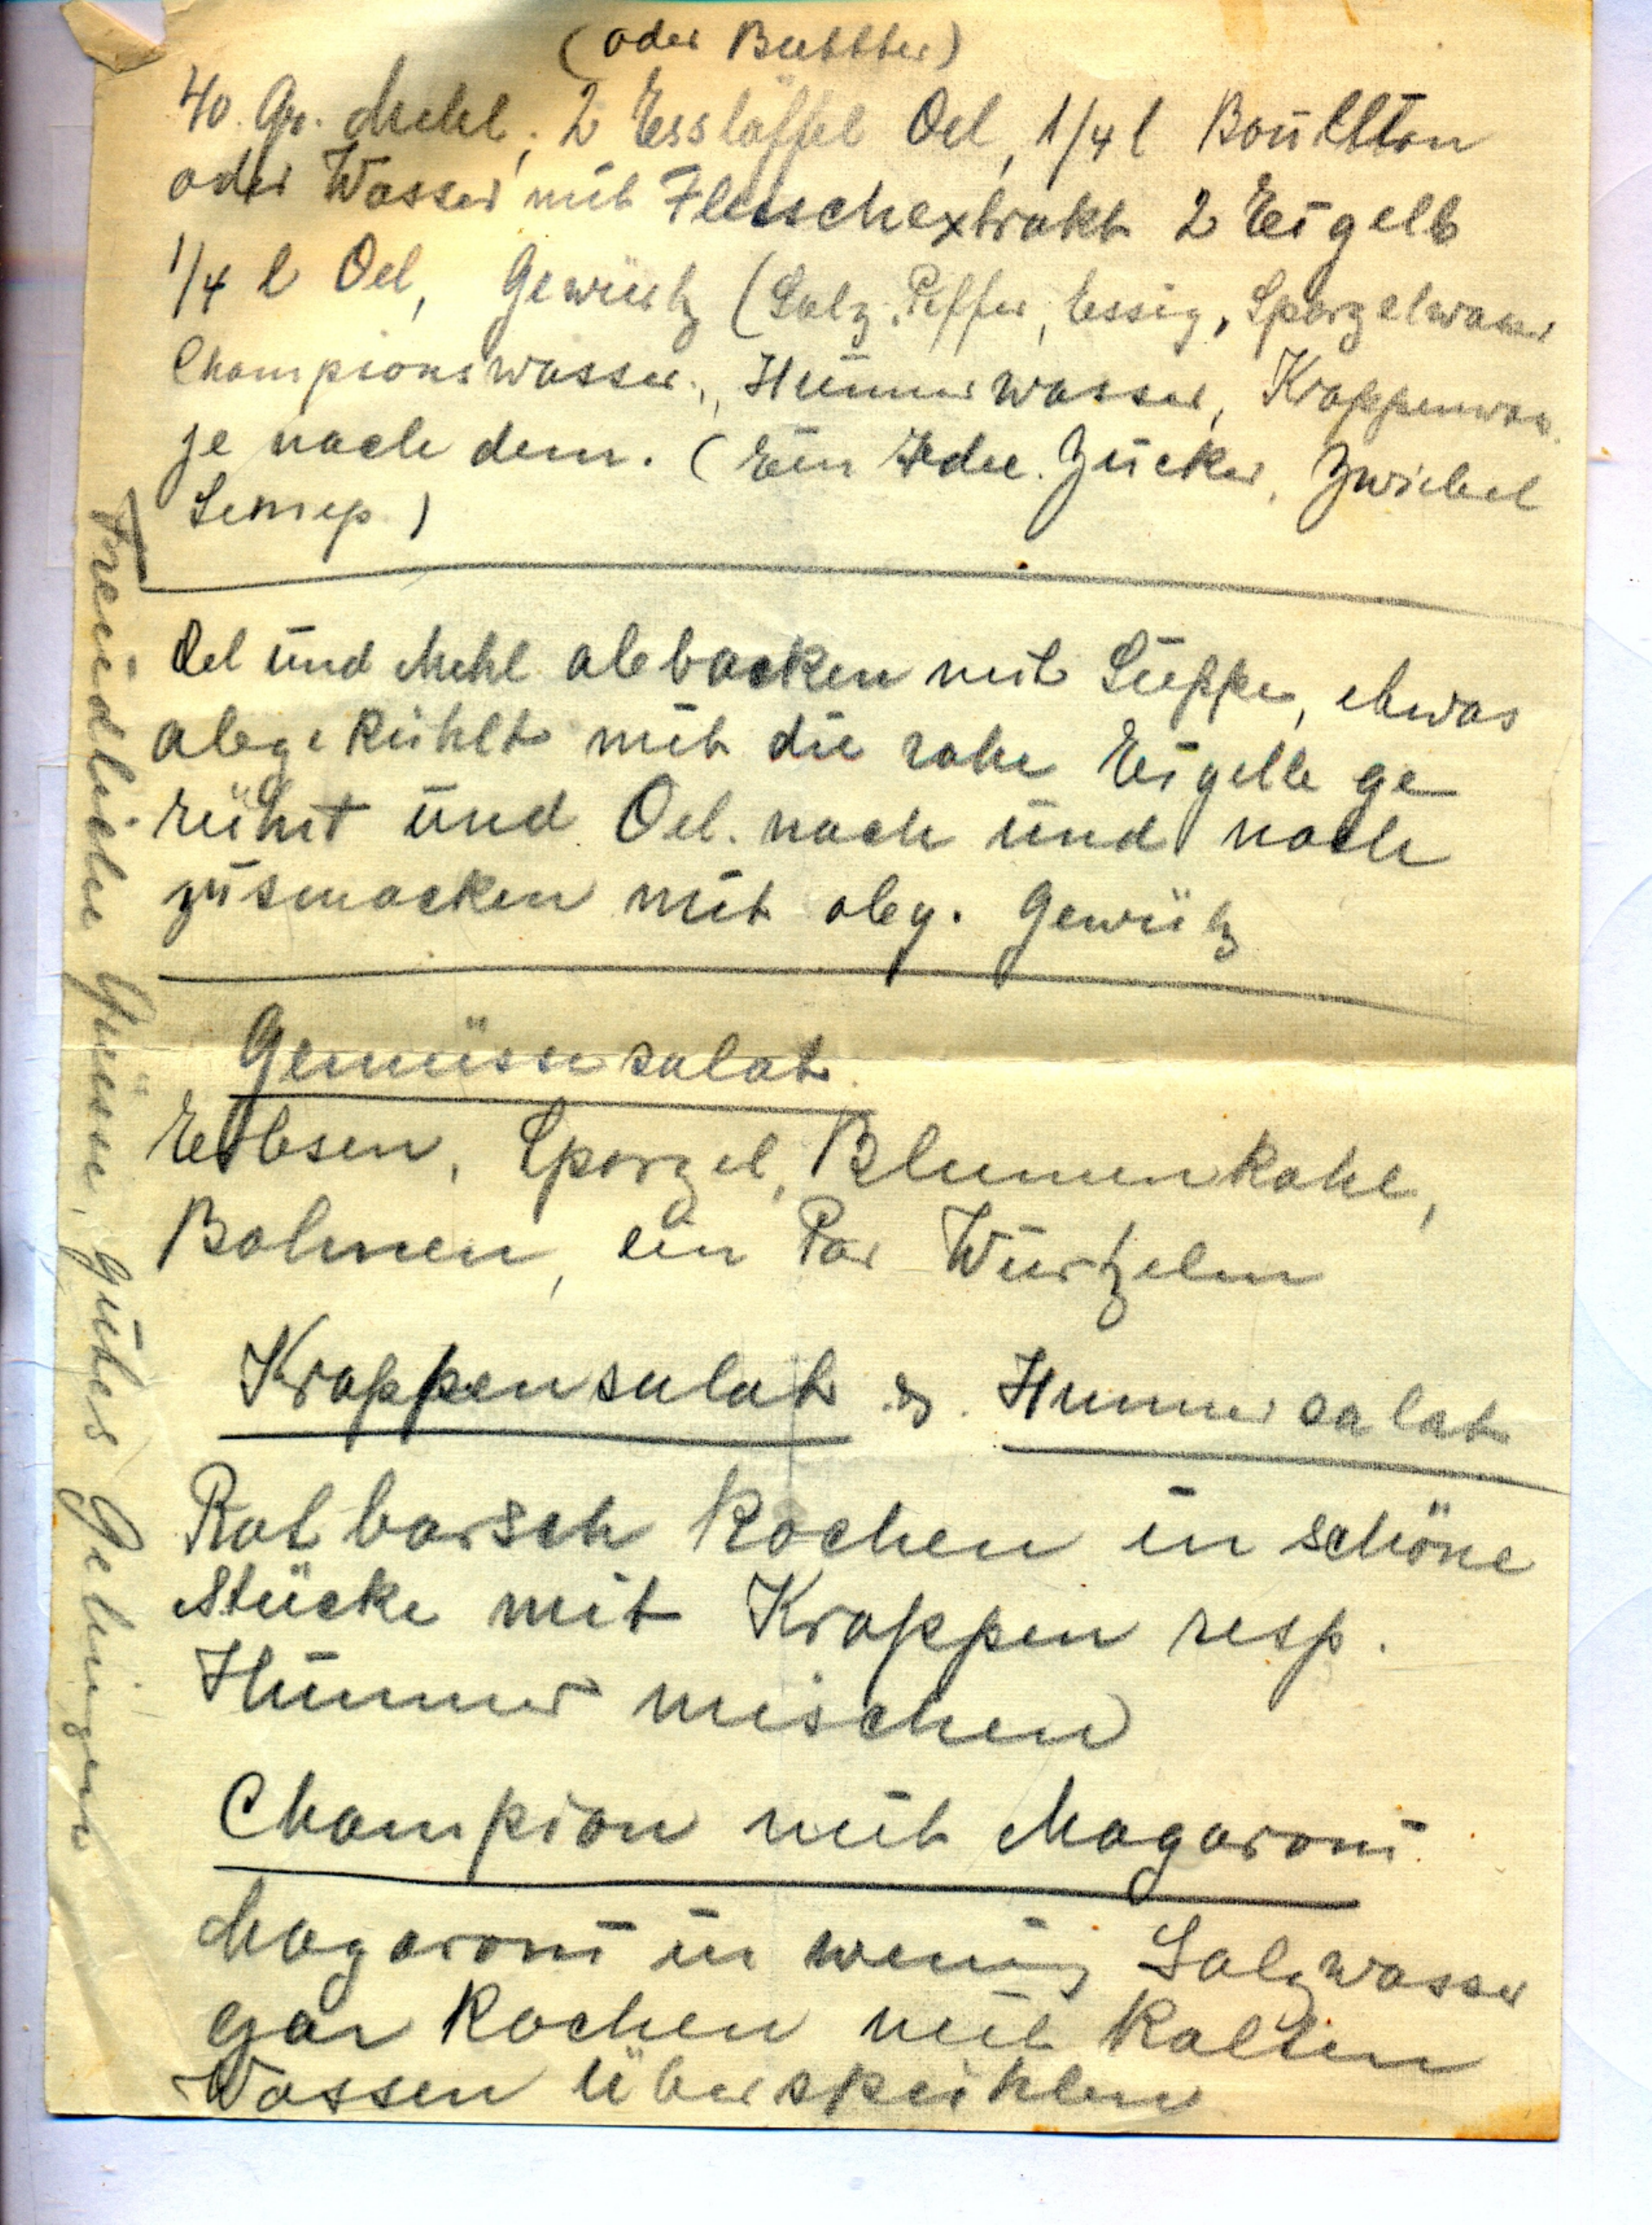 (oder Buttter)
40. Gr. Mehl, 2 Esslöffel Oel, 1/4 l Boullton
oder Wasser mit Fleischextrakt 2 Eigelb
1/4 l Oel, Gewürtz (Salz, Peffer, Essig, Sparzelwasser
Championswasser, Hummerwasser, Krappenwas.
je nach dem. (Ein Idee. Zucker, Zwiebel
Semep)
Oel und Mehl abbacken mit Suppe, etwas
abgekühlt mit die rohe Eigelb ge
rührt und Oel. nach und nach
zusmacken mit obg. Gewütz
Gemüsse salat
Erbsen, Sparzel, Blumenkohl,
Bohnen, ein Par Würtzeln
Krappensalat & Hummersalat
Rotbarsch kochen in schöne
Stücke mit Krappen resp.
Hummer mischen
Champion mit Magaroni
Magaroni in wenig Salzwasser
gar kochen mit kalten
Wassen überspühlen
Freundliche Grüsse, gutes Gelingen